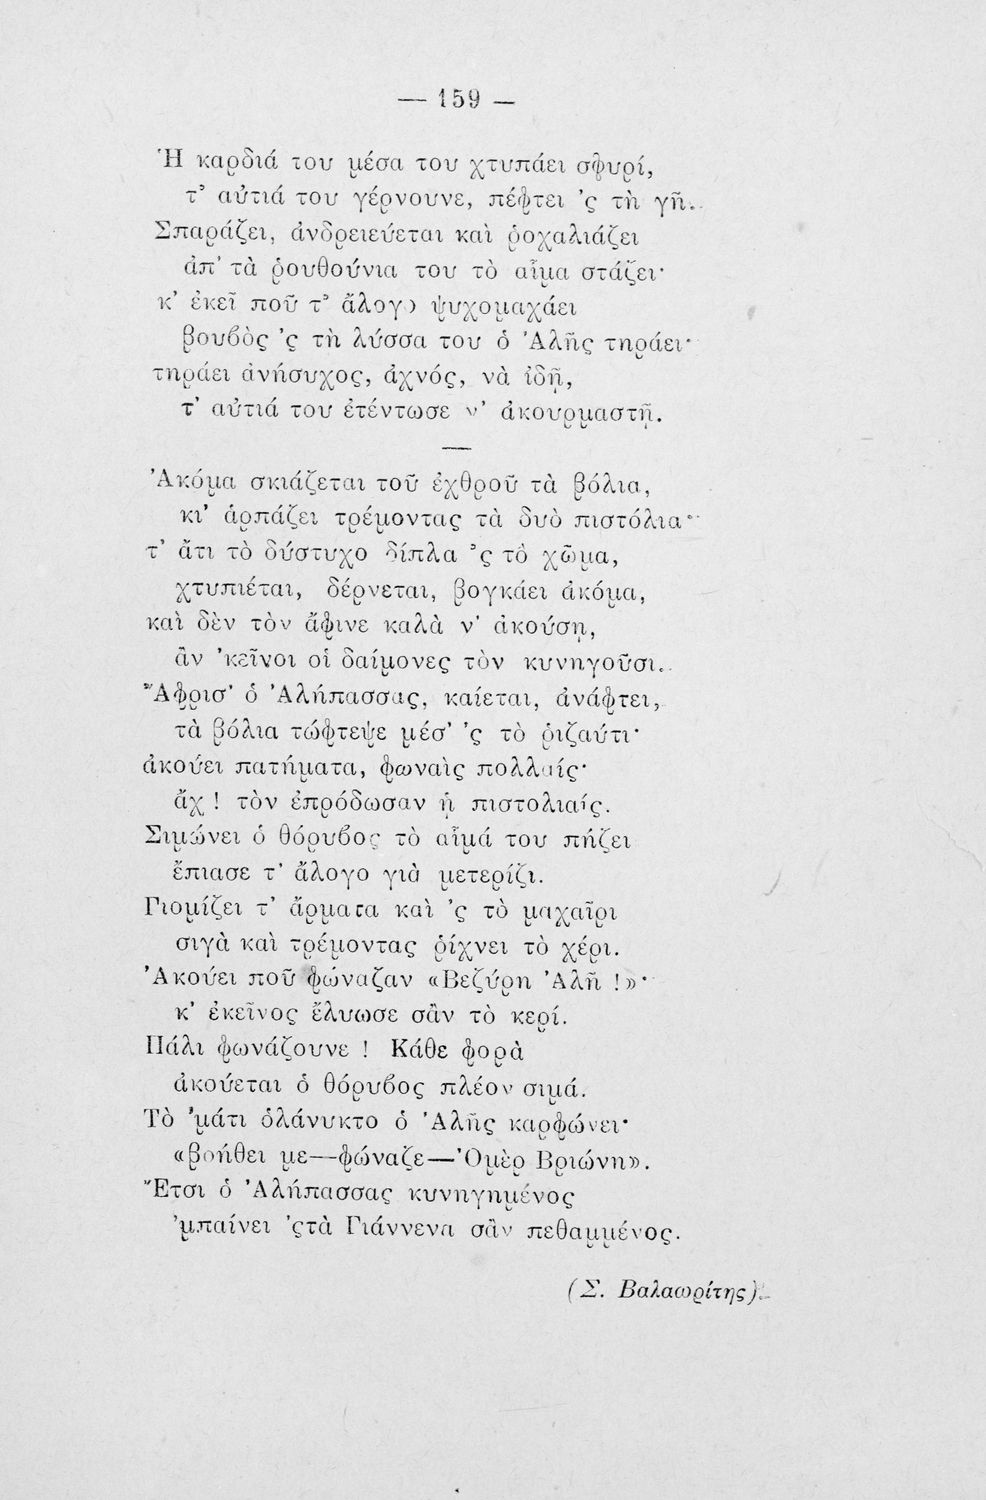 — 159 —
Ἡ καρδιά του μέσα του χτυπάει σφυρί,
τ' αὐτιά του γέρνουνε, πέφτει 'ς τὴ γῆ.
Σπαράζει, ἀνδρειεύεται καὶ ῥοχαλιάζει
ἀπ' τὰ ῥουθούνια του τὸ αἷμα στάζει·
κ' ἐκεῖ ποῦ τ' ἄλογο ψυχομαχάει
βουβὸς 'ς τὴ λύσσα του ὁ Ἀλῆς τηράει·
τηράει ἀνήσυχος, ἀχνός, νὰ ἰδῇ,
τ' αὐτιά του ἐτέντωσε ν' ἀκουρμαστῇ.
—
Ἀκόμα σκιάζεται τοῦ ἐχθροῦ τὰ βόλια,
κι' ἁρπάζει τρέμοντας τὰ δυὸ πιστόλια·
τ' ἄτι τὸ δύστυχο δίπλα 'ς τὸ χῶμα,
χτυπιέται, δέρνεται, βογκάει ἀκόμα,
καὶ δὲν τὸν ἄφινε καλὰ ν' ἀκούσῃ,
ἂν 'κεῖνοι οἱ δαίμονες τὸν κυνηγοῦσι.
Ἄφρισ' ὁ Ἀλήπασσας, καίεται, ἀνάφτει,
τὰ βόλια τώφτεψε μέσ' 'ς τὸ ῥιζαύτι·
ἀκούει πατήματα, φωναὶς πολλαίς·
ἄχ ! τὸν ἐπρόδωσαν ᾑ πιστολιαίς.
Σιμώνει ὁ θόρυβος τὸ αἷμά του πήζει
ἔπιασε τ' ἄλογο γιὰ μετερίζι.
Γιομίζει τ' ἄρματα καὶ 'ς τὸ μαχαῖρι
σιγὰ καὶ τρέμοντας ῥίχνει τὸ χέρι.
Ἀκούει ποῦ φώναζαν «Βεζύρη Ἀλῆ !»·
κ' ἐκεῖνος ἔλυωσε σὰν τὸ κερί.
Πάλι φωνάζουνε ! Κάθε φορὰ
ἀκούεται ὁ θόρυβος πλέον σιμά.
Τὸ 'μάτι ὁλάνυκτο ὁ Ἀλῆς καρφώνει·
«βοήθει με—φώναζε—Ὀμὲρ Βριώνη».
Ἔτσι ὁ Ἀλήπασσας κυνηγημένος
'μπαίνει 'ςτὰ Γιάννενα σὰν πεθαμμένος.
(Σ. Βαλαωρίτης).